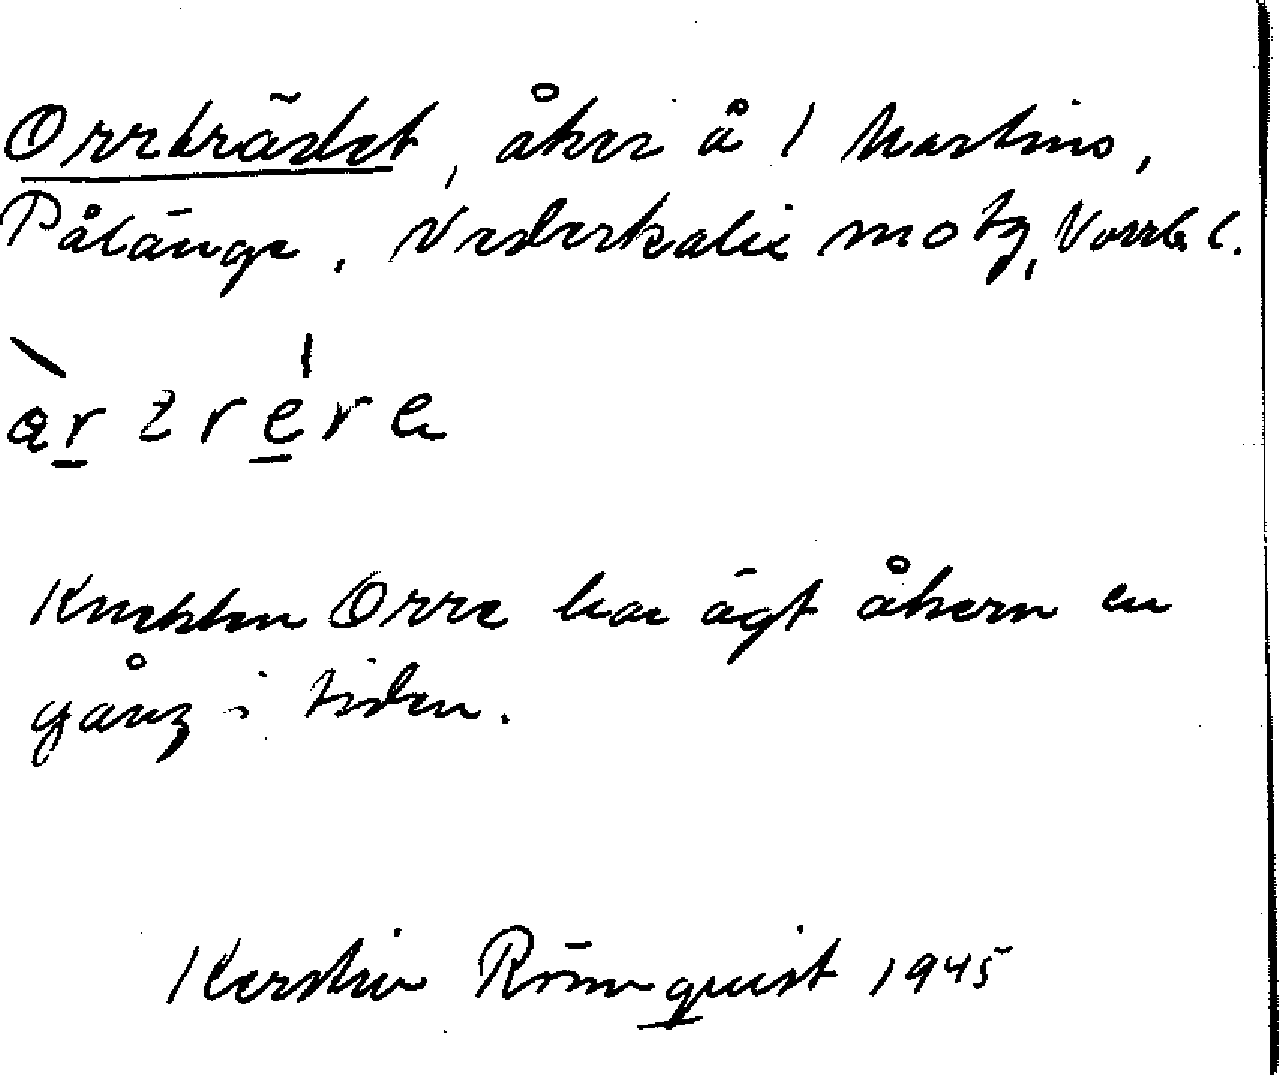 Orrträdet, åker å 1 Martins,
Pålänge, Nederkalix sn o tg, Norrb l.
Knekten Orre har ägt åkern en
gång i tiden.
Kerstin Rönnquist 1945